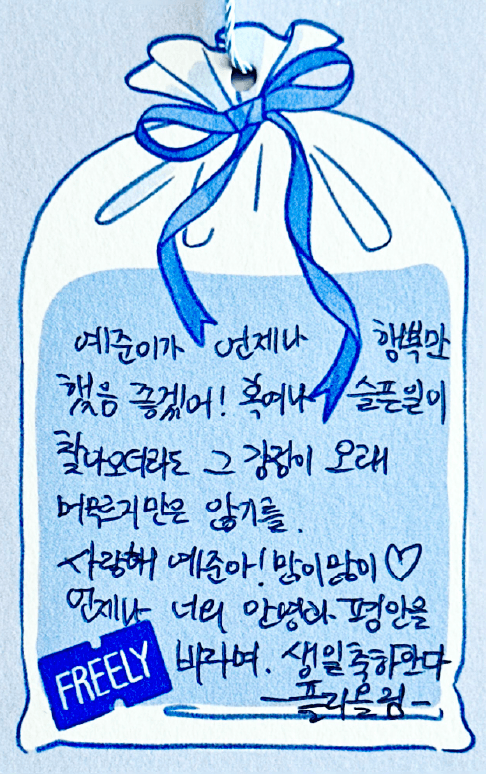 예준이가 언제나 행복만
했음 좋겠어! 혹여나 슬픈일이
찾아오더라도 그 감정이 오래
머무르지만은 않기를.
사랑해 예준아! 많이많이♡
언제나 너의 안녕과 평안을
바라며. 생일축하한다
-플리올림-
FREELY